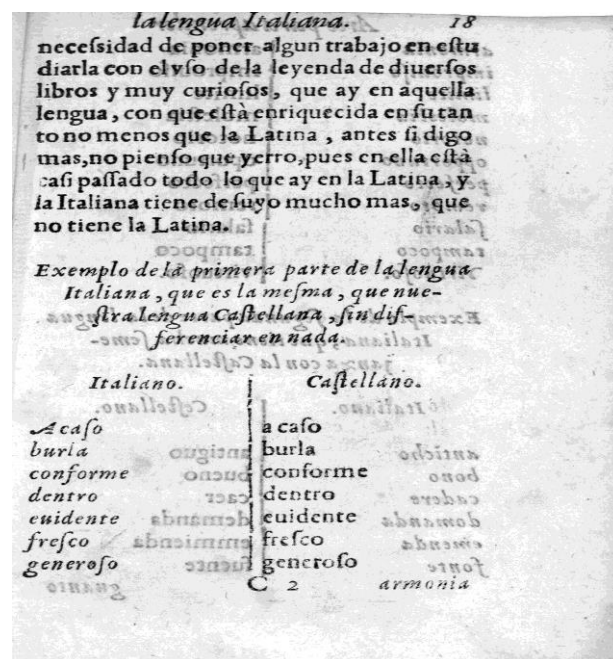 la lengua Italiana. 18
neceſsidad de poner algun trabajo en eſtu
diarla con el vſo de la leyenda de diuerſos
libros y muy curioſos, que ay en aquella
lengua, con que eſtà enriquecida en ſu tan
to no menos que la Latina, antes ſi digo
mas, no pienſo que yerro, pues en ella eſtà
caſi paſſado todo lo que ay en la Latina, y
la Italiana tiene de ſuyo mucho mas, que
no tiene la Latina.
Exemplo de la primera parte de la lengua
Italiana, que es la meſma, que nue-
ſtra lengua Caſtellana, ſin dif-
ferenciar en nada.
Italiano. Caſtellano.
Acaſo a caſo
burla burla
conforme conforme
dentro dentro
euidente euidente
freſco freſco
generoſo generoſo
C 2 armonia